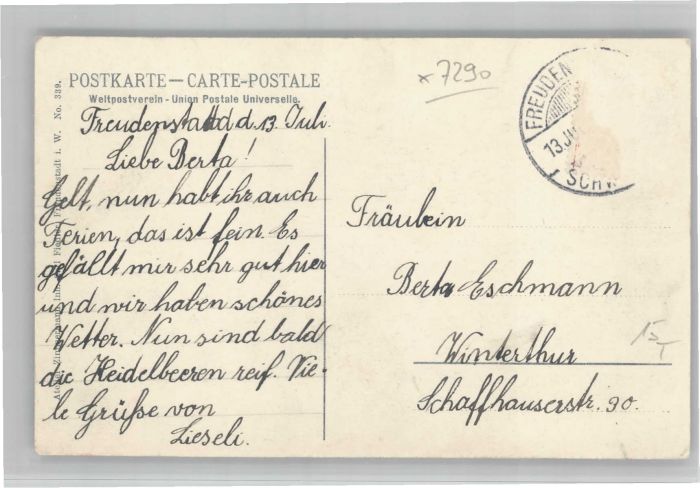 POSTKARTE — CARTE-POSTALE
Weltpostverein - Union Postale Universelle.
No. 339.
Freudenstadt d. 13. Juli.
Liebe Berta!
Gelt, nun habt ihr auch
Ferien, das ist fein. Es
gefällt mir sehr gut hier
und wir haben schönes
Wetter. Nun sind bald
die Heidelbeeren reif. Vie-
le Grüße von
Lieseli.
x 7290
FREUDEN
13 JU
SCHW
Fräulein
Berta Eschmann
Winterthur
Schaffhauserstr. 90.